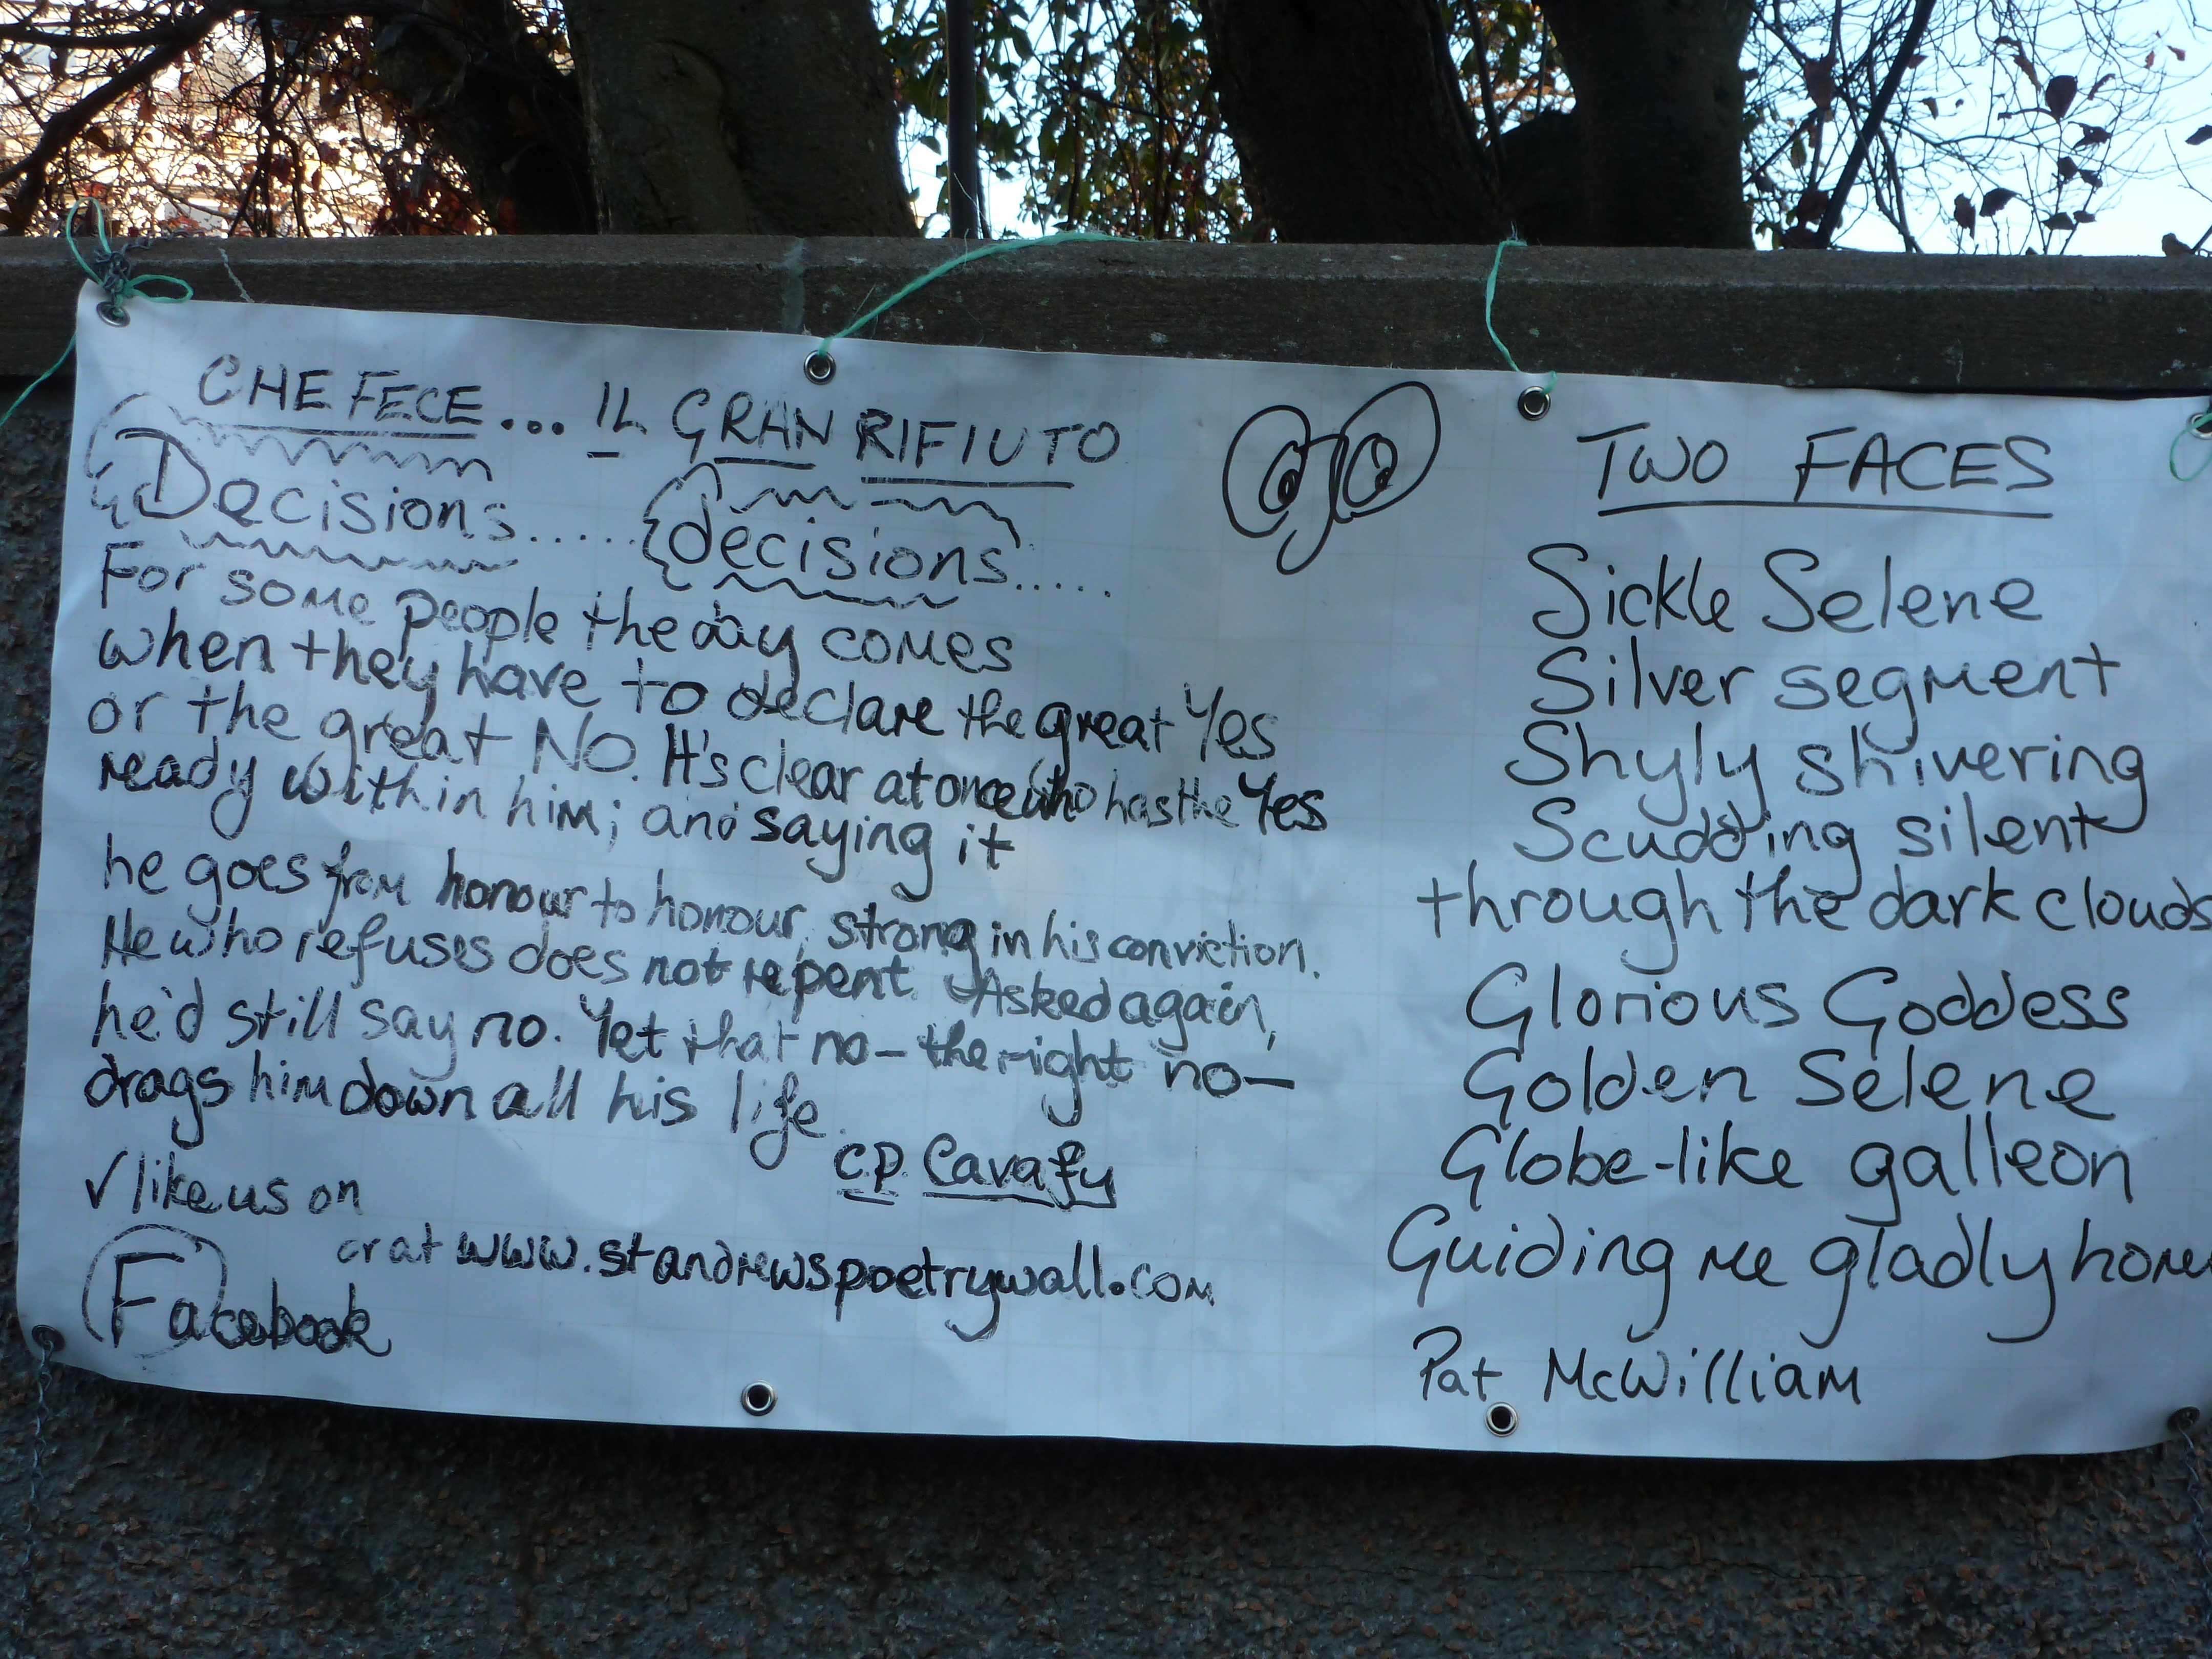 CHE FECE... IL GRAN RIFIUTO
Decisions..... decisions.....
For some people the day comes
when they have to declare the great Yes
or the great NO. It's clear at once who has the Yes
ready within him; and saying it
he goes from honour to honour, strong in his conviction.
He who refuses does not repent. Asked again,
he'd still say no. Yet that no - the right no -
drags him down all his life.
CP Cavafy
√ like us on
Facebook
or at www.standrewspoetrywall.com
TWO FACES
Sickle Selene
Silver segment
Shyly shivering
Scudding silent
through the dark clouds
Glorious Goddess
Golden Selene
Globe-like galleon
Guiding me gladly hom
Pat McWilliam